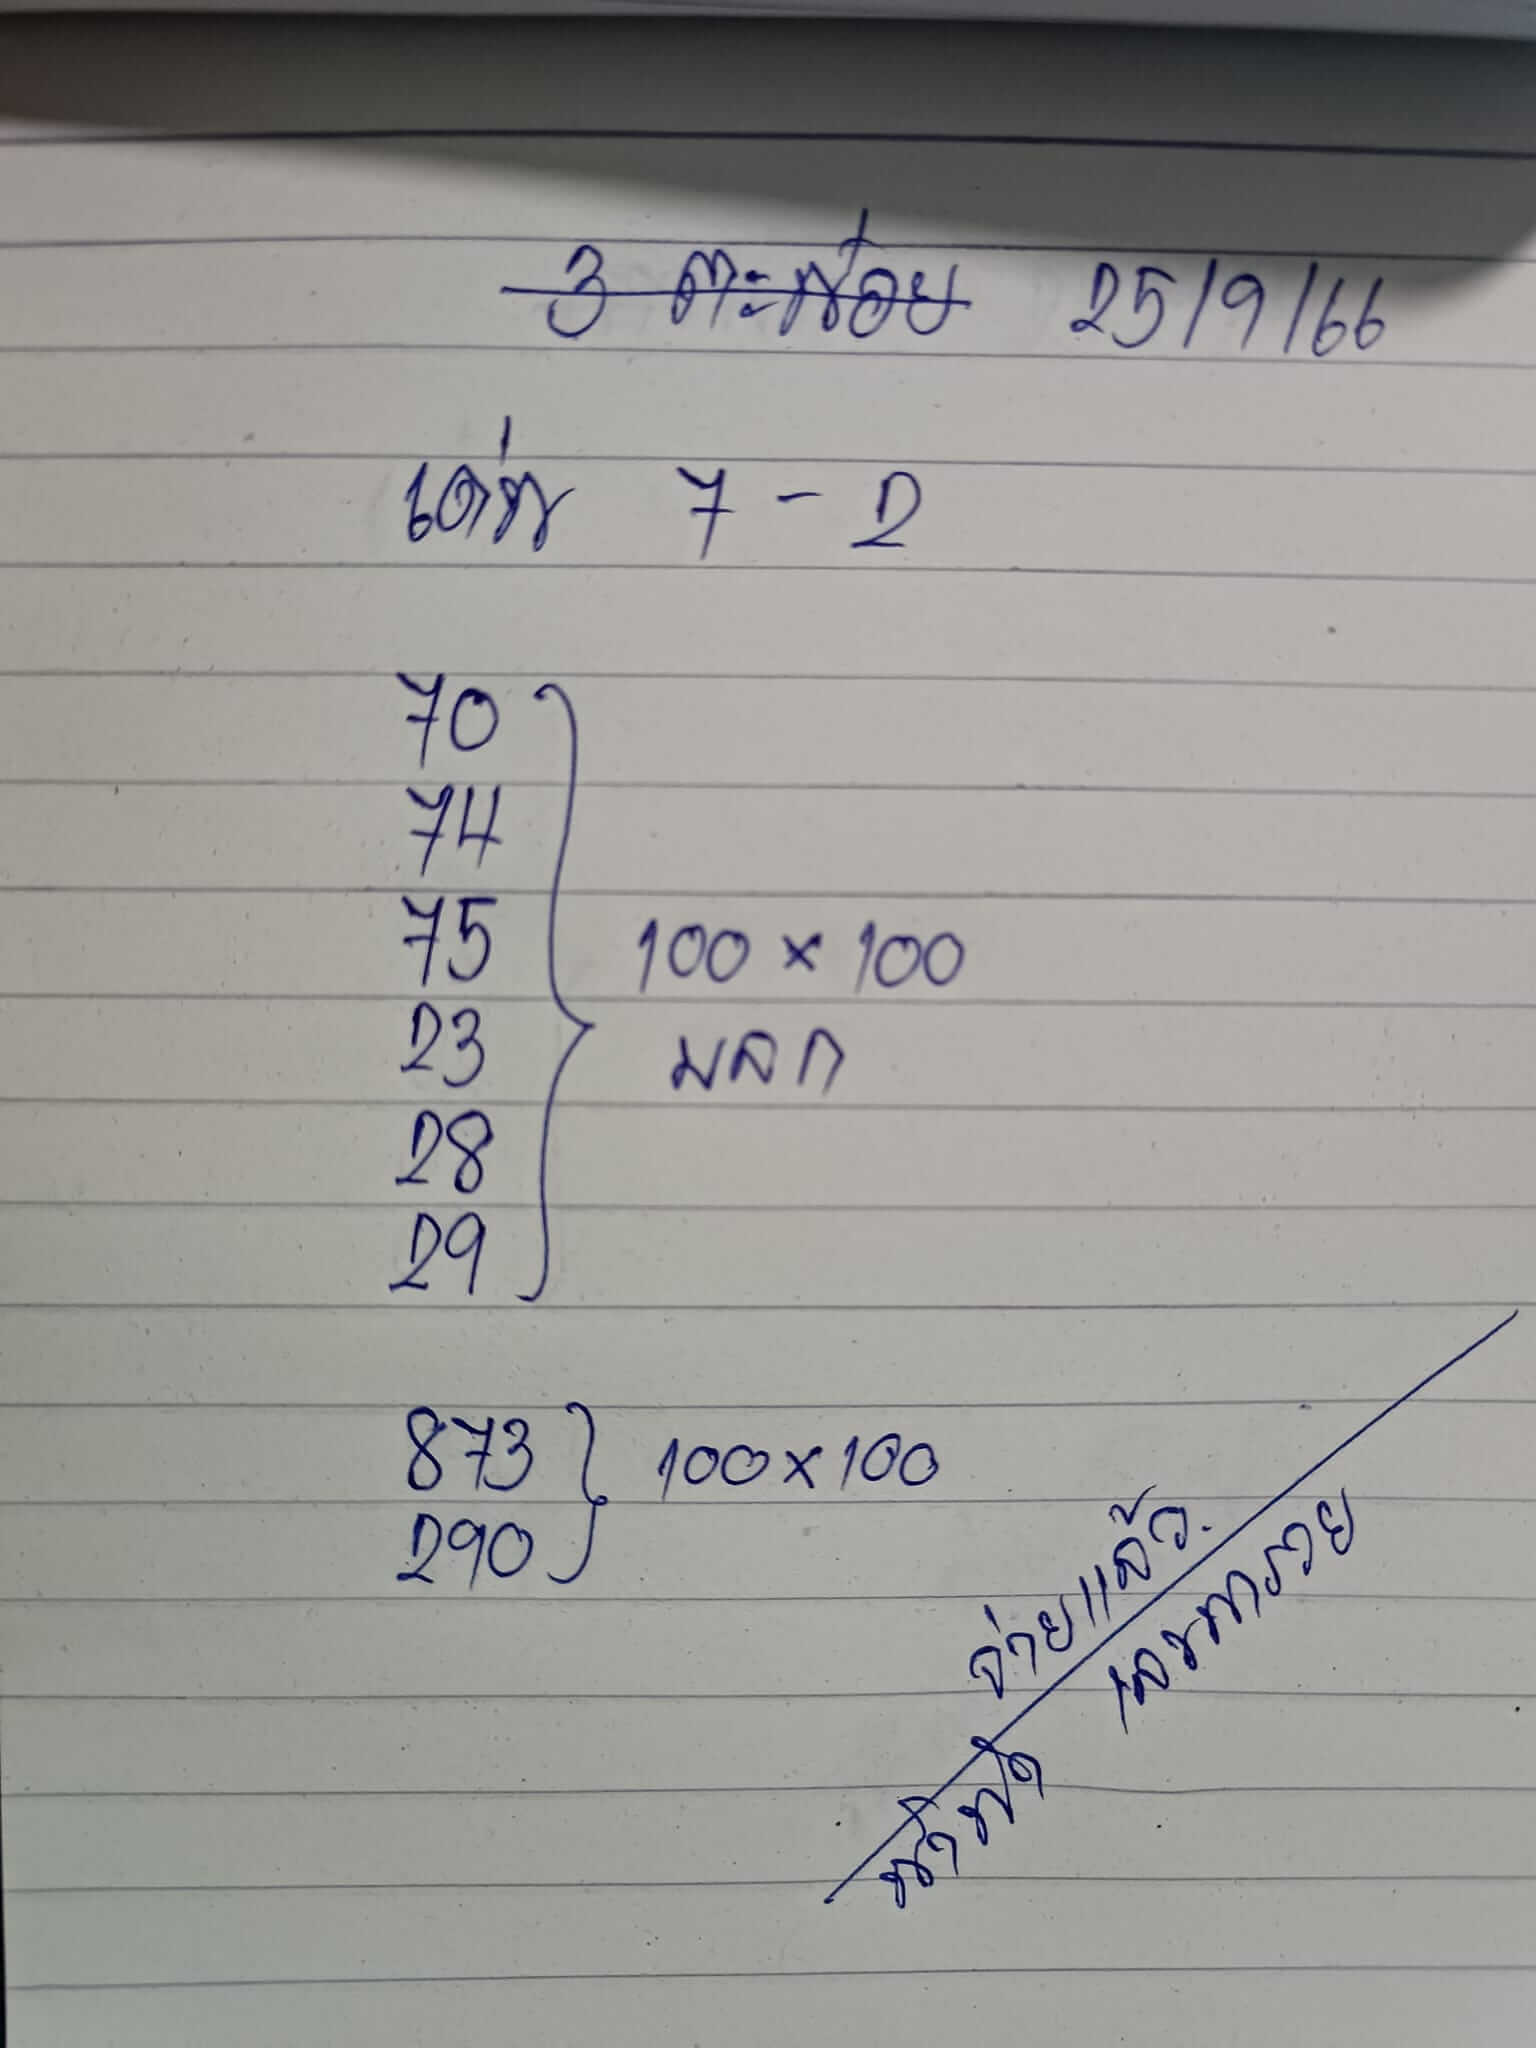 3 ตะพ่อย 25/9/66
เด่น 7 - 2
70
74
75
23
28
29
100 × 100
มลก
873
290
100 × 100
จ่ายแล้ว.
น้ำฟ้า เลขพารวย